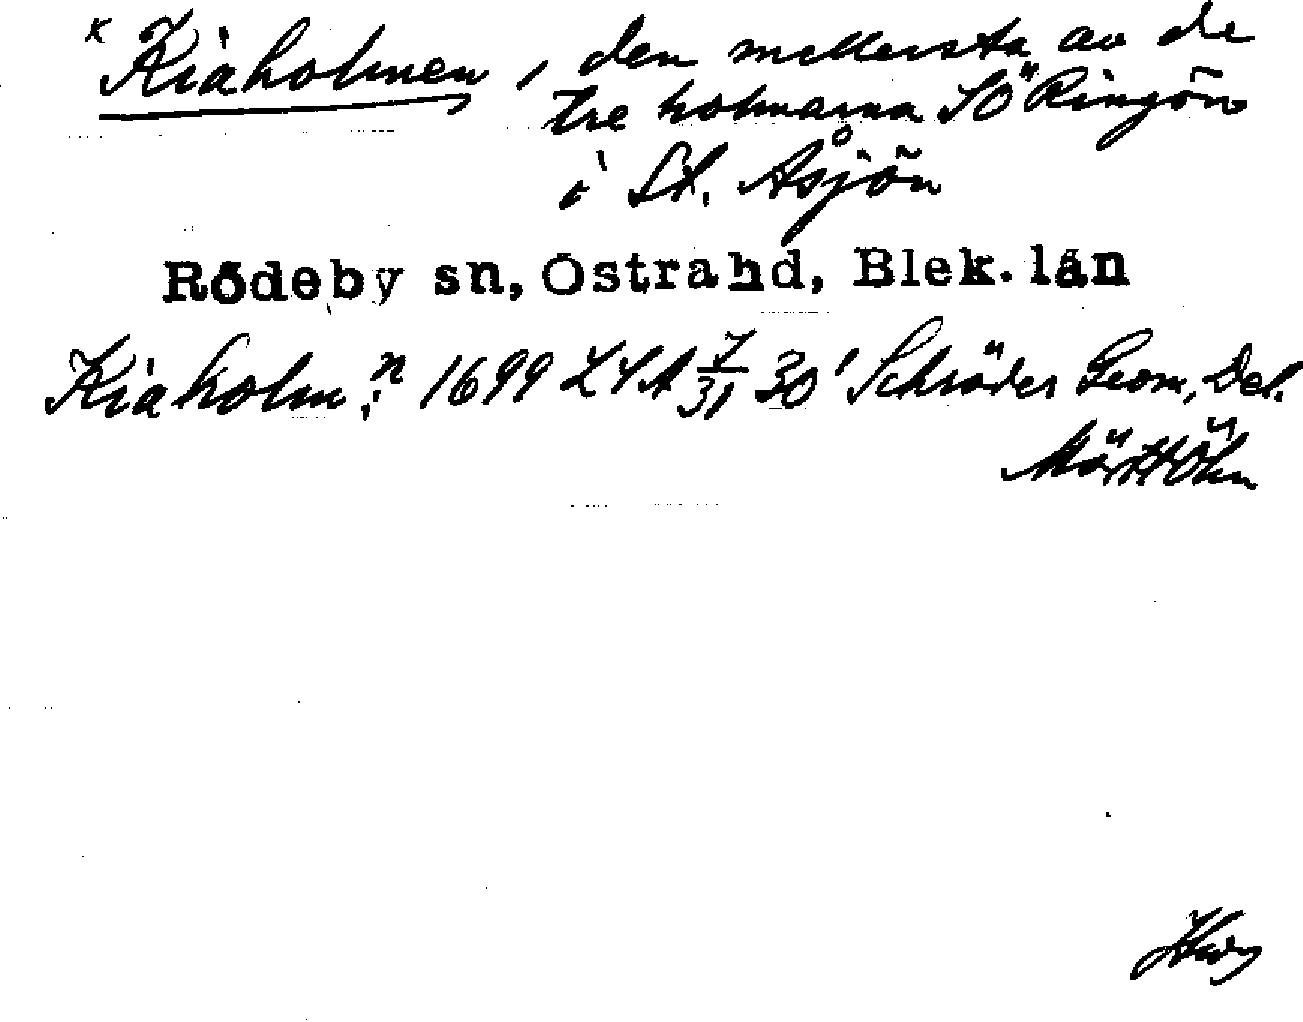 x Kiaholmen, den mellersta av de
tre holmarna SÖ Ringön
i St. Åsjön
Rödeby sn, Östra hd, Blek. län
Kiaholm:n 1699 LSA 7/31 30' Schröder Geom, Del.
Mört Öhn